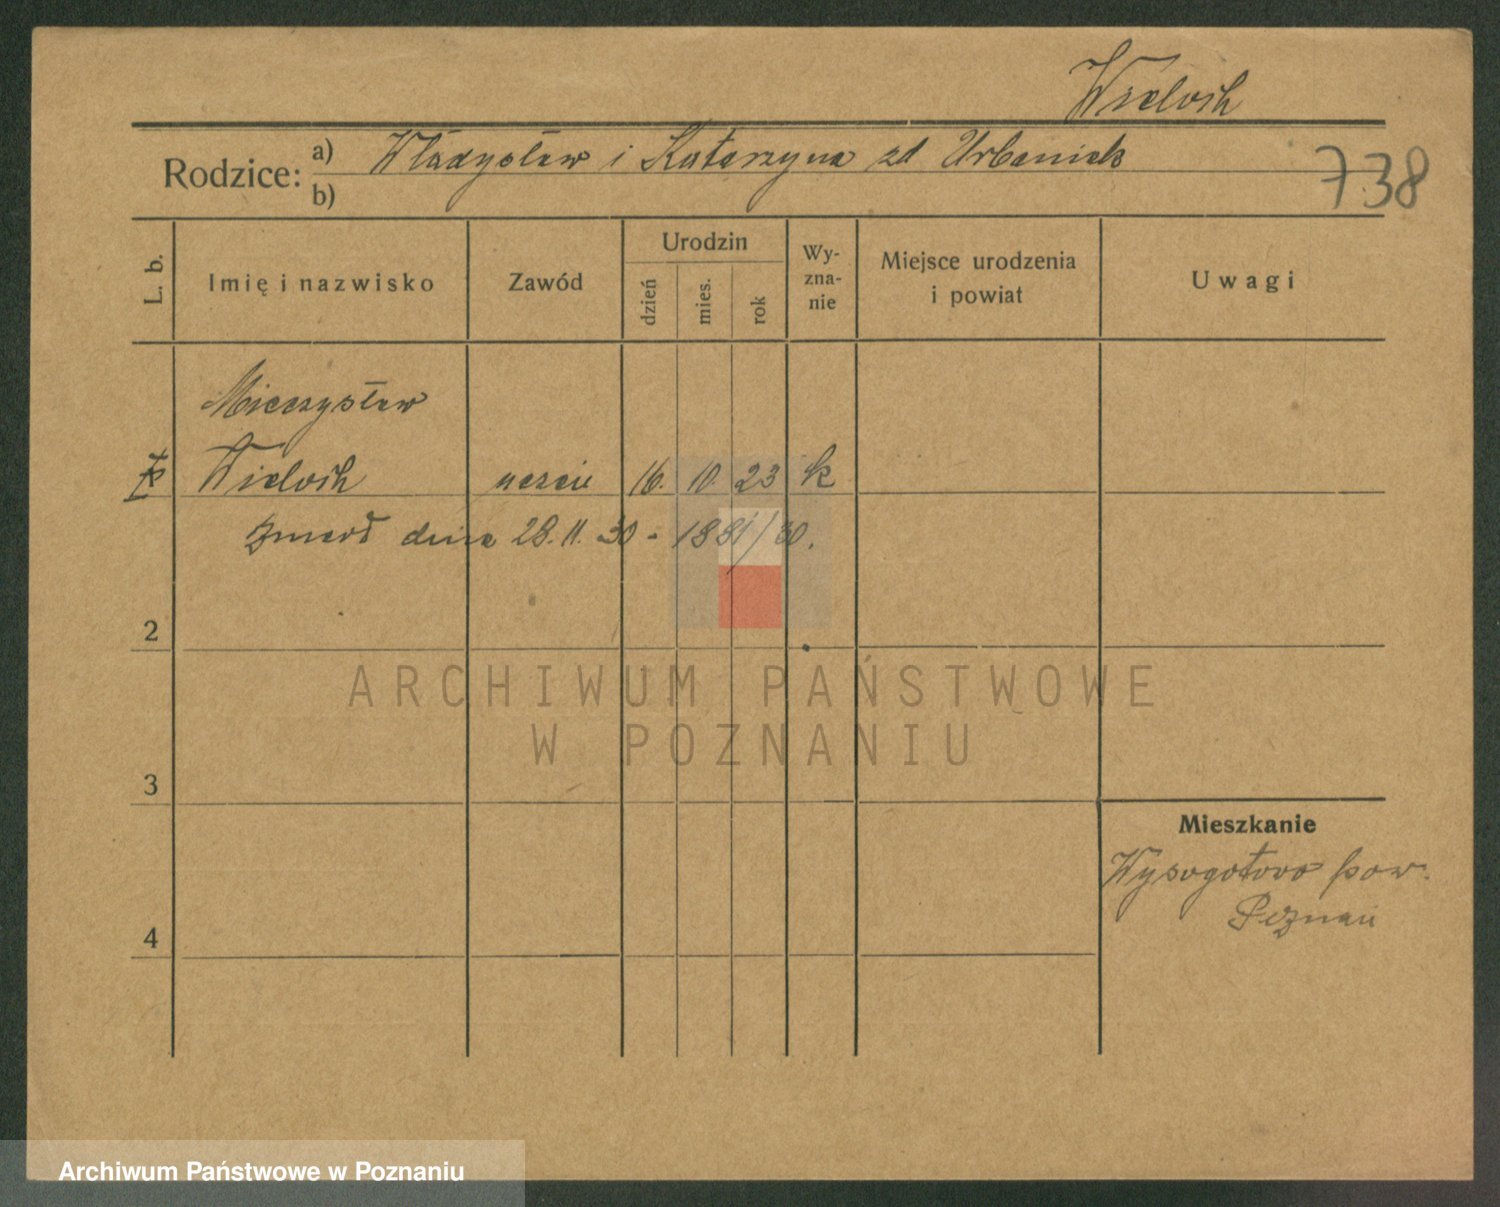 Wielosik
Rodzice:
a) Władysław i Katarzyna zd Urbaniak
b)
738
L. b.
Imię i nazwisko
Zawód
Urodzin
dzień
mies.
rok
Wy-
zna-
nie
Miejsce urodzenia
i powiat
Uwagi
Mieczysław
uczeń 16. 10. 23 k
Zmarł dnia 28.11.30 - 1881/30.
2
3
4
Mieszkanie
Wysogotowo pow.
Poznań
ARCHIWUM PAŃSTWOWE
W POZNANIU
Archiwum Państwowe w Poznaniu